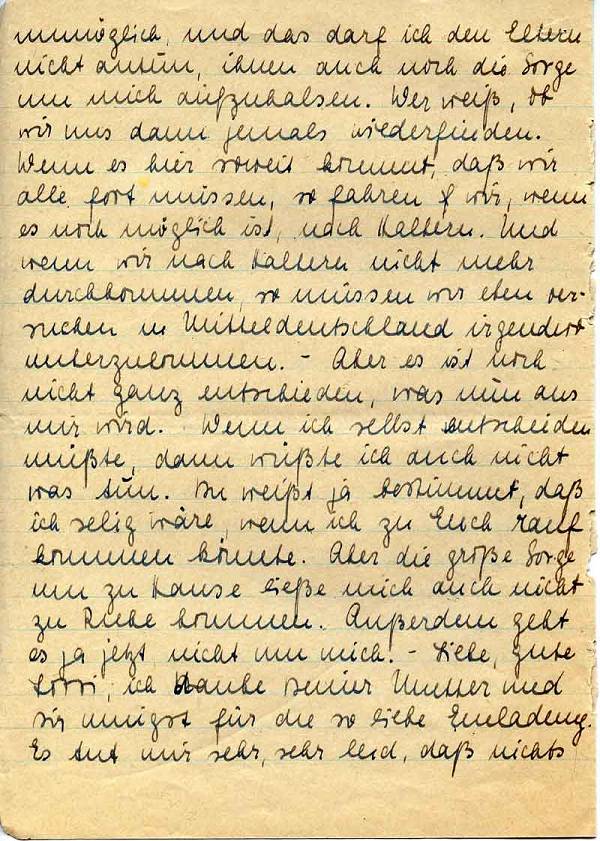 unmöglich, und das darf ich den Eltern
nicht antun, ihnen auch noch die Sorge
um mich aufzuhalsen. Wer weiß, ob
wir uns dann jemals wiederfinden.
Wenn es hier soweit kommt, daß wir
alle fort müssen, so fahren wir, wenn
es noch möglich ist, nach Kaltern. Und
wenn wir nach Kaltern nicht mehr
durchkommen, so müssen wir eben ver-
suchen in Mitteldeutschland irgendwo
unterzukommen. - Aber es ist noch
nicht ganz entschieden, was nun aus
mir wird. Wenn ich selbst entscheiden
müßte, dann wüßte ich auch nicht
was tun. Du weißt ja bestimmt, daß
ich selig wäre, wenn ich zu Euch rauf
kommen könnte. Aber die große Sorge
um zu Hause ließe mich auch nicht
zu Ruhe kommen. Außerdem geht
es ja jetzt nicht um mich. - Liebe, gute
ich danke Deiner Mutter und
Dir innigst für die so liebe Einladung.
Es tut mir sehr, sehr leid, daß nichts